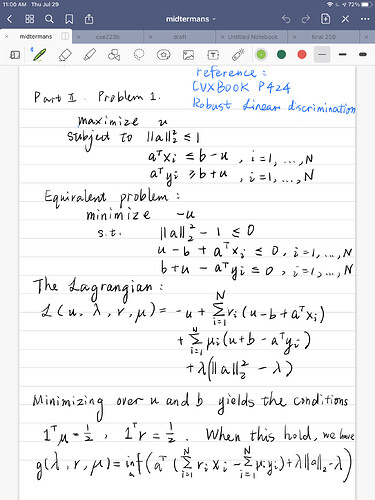 11:00 AM Thu Jul 29
72%
midtermans
midtermans
cse223b
draft
Untitled Notebook
final 200
reference :
CVXBOOK P424
Robust Linear discrimination
Part II . Problem 1.
maximize u
subject to ||a||₂² ≤ 1
aᵀxᵢ ≤ b-u , i=1, ..., N
aᵀyᵢ ≥ b+u , i=1, ..., N
Equivalent problem :
minimize -u
s.t. ||a||₂² - 1 ≤ 0
u - b + aᵀxᵢ ≤ 0, i=1, ..., N
b+u - aᵀyᵢ ≤ 0 , i=1, ..., N
The Lagrangian :
L(u, λ, r, μ) = -u + Σᵢ₌₁ᴺ rᵢ (u-b+aᵀxᵢ)
+ Σᵢ₌₁ᴺ μᵢ(u+b - aᵀyᵢ)
+ λ(||a||₂² - λ)
Minimizing over u and b yields the conditions
1ᵀμ = 1/2 , 1ᵀr = 1/2 . When this hold, we have
g(λ, r, μ) = inf_a (aᵀ (Σᵢ₌₁ᴺ rᵢ xᵢ - Σᵢ₌₁ᴺ μᵢyᵢ) + λ||a||₂ - λ)